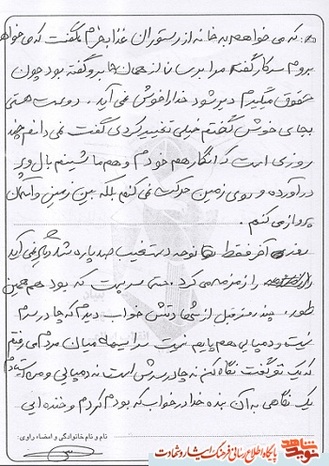 که می خواهم به خانه از رستوران غذا بخرم نگفت که می خواهم
بروم سرکار گفته مرا برسان از همان جا برو گفته بود چون
حقوق میگیرم دیر شود خدا را خوش نمی آید. دوست هستی
بجای خوش گفتم خیلی تغییر کردی گفت نمی دانم چند
روزی است که انگار هم خودم و هم ماشینم بال و پر
درآورده و روی زمین حرکت نمی کنم بلکه بین زمین و آسمان
پرواز می کنم.
روز آخر فقط نوحه دستغیب صد پاره شد
را زمزمه می کرد. حتی سر پست که بود هم همین
طور. چند روز قبل از شهادتش خواب دیدم که چادر سرم
نیست و دمپایی هم پایم نیست سراسیمه میان مردم می رفتم
که یک نفر گفت نگاه کن نه چادر سرش است نه دمپایی و من ایستادم
یک نگاهی به آن بنده خدا در خواب که بودم کردم و خنده ایی
نام و نام خانوادگی و امضاء راوی:
نوید شاهد
پایگاه اطلاع رسانی فرهنگ ایثار و شهادت